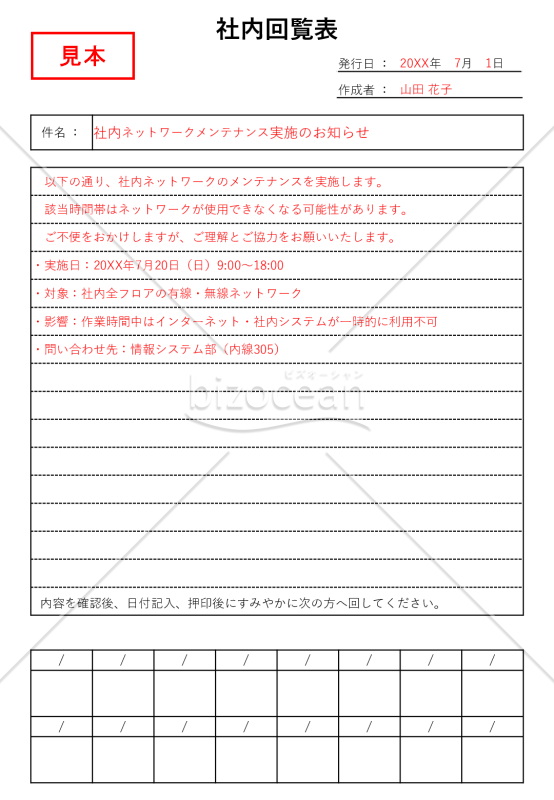 社内回覧表
見本
発行日 ： 20XX年 7月 1日
作成者 ： 山田 花子
件名 ： 社内ネットワークメンテナンス実施のお知らせ
以下の通り、社内ネットワークのメンテナンスを実施します。
該当時間帯はネットワークが使用できなくなる可能性があります。
ご不便をおかけしますが、ご理解とご協力をお願いいたします。
・実施日：20XX年7月20日（日）9:00～18:00
・対象：社内全フロアの有線・無線ネットワーク
・影響：作業時間中はインターネット・社内システムが一時的に利用不可
・問い合わせ先：情報システム部（内線305）
ビズオーシャン
bizocean
内容を確認後、日付記入、押印後にすみやかに次の方へ回してください。
/ / / / / / / /
/ / / / / / / /